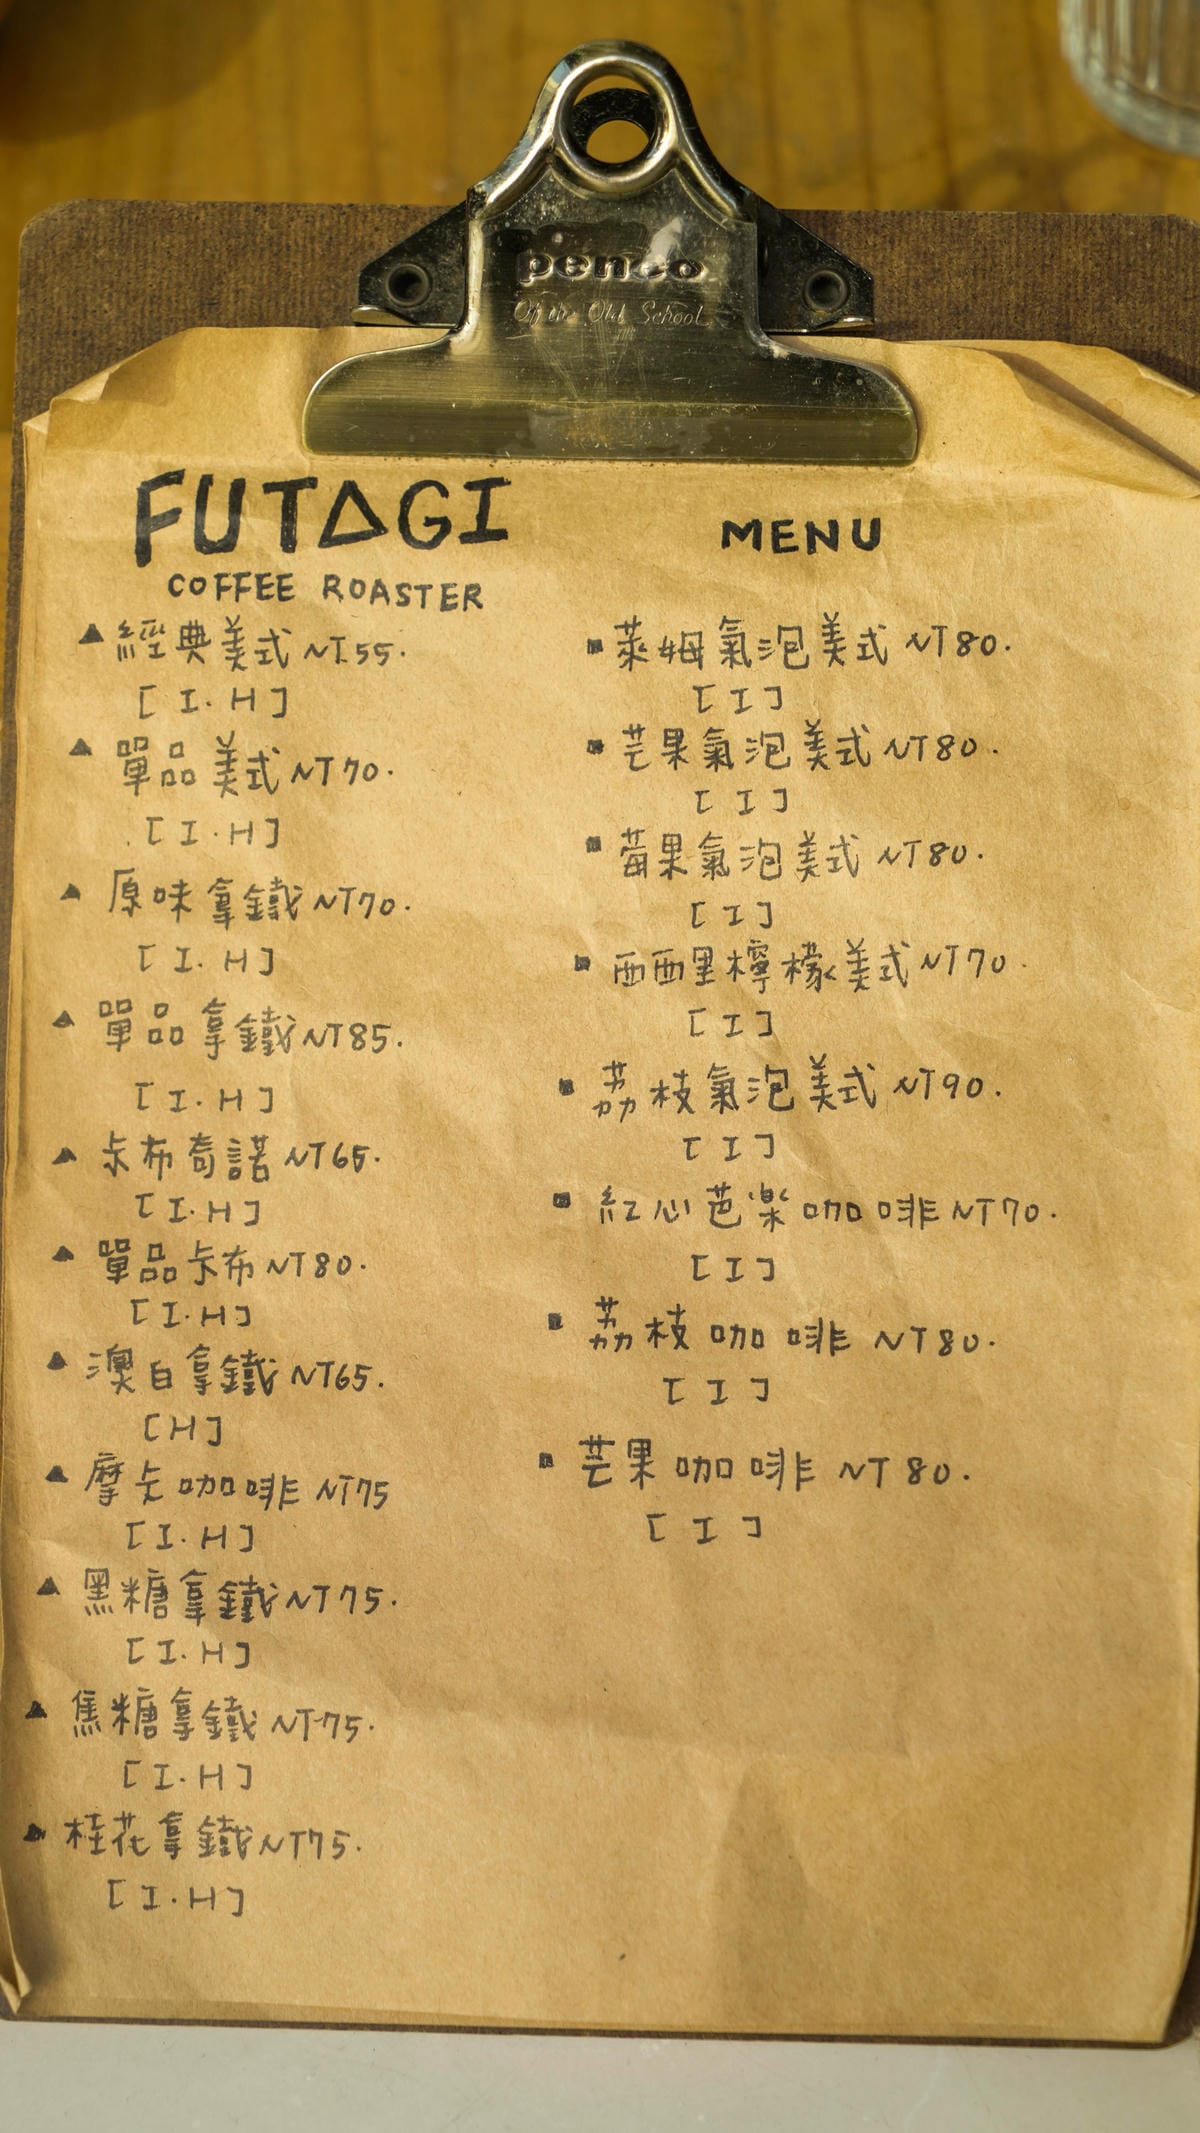 penco
Of the Old School
FUTAGI
COFFEE ROASTER
▲ 經典美式 NT.55.
[I.H]
▲ 單品美式 NT70.
[I.H]
▲ 原味拿鐵 NT70.
[I.H]
▲ 單品拿鐵 NT85.
[I.H]
▲ 卡布奇諾 NT65.
[I.H]
▲ 單品卡布 NT80.
[I.H]
▲ 澳白拿鐵 NT65.
[H]
▲ 摩卡咖啡 NT75
[I.H]
▲ 黑糖拿鐵 NT75.
[I.H]
▲ 焦糖拿鐵 NT75.
[I.H]
▲ 桂花拿鐵 NT75.
[I.H]
MENU
■ 萊姆氣泡美式 NT80.
[I]
■ 芒果氣泡美式 NT80.
[I]
■ 莓果氣泡美式 NT80.
[I]
■ 西西里檸檬美式 NT70.
[I]
■ 荔枝氣泡美式 NT90.
[I]
■ 紅心芭樂咖啡 NT70.
[I]
■ 荔枝咖啡 NT80.
[I]
■ 芒果咖啡 NT80.
[I]